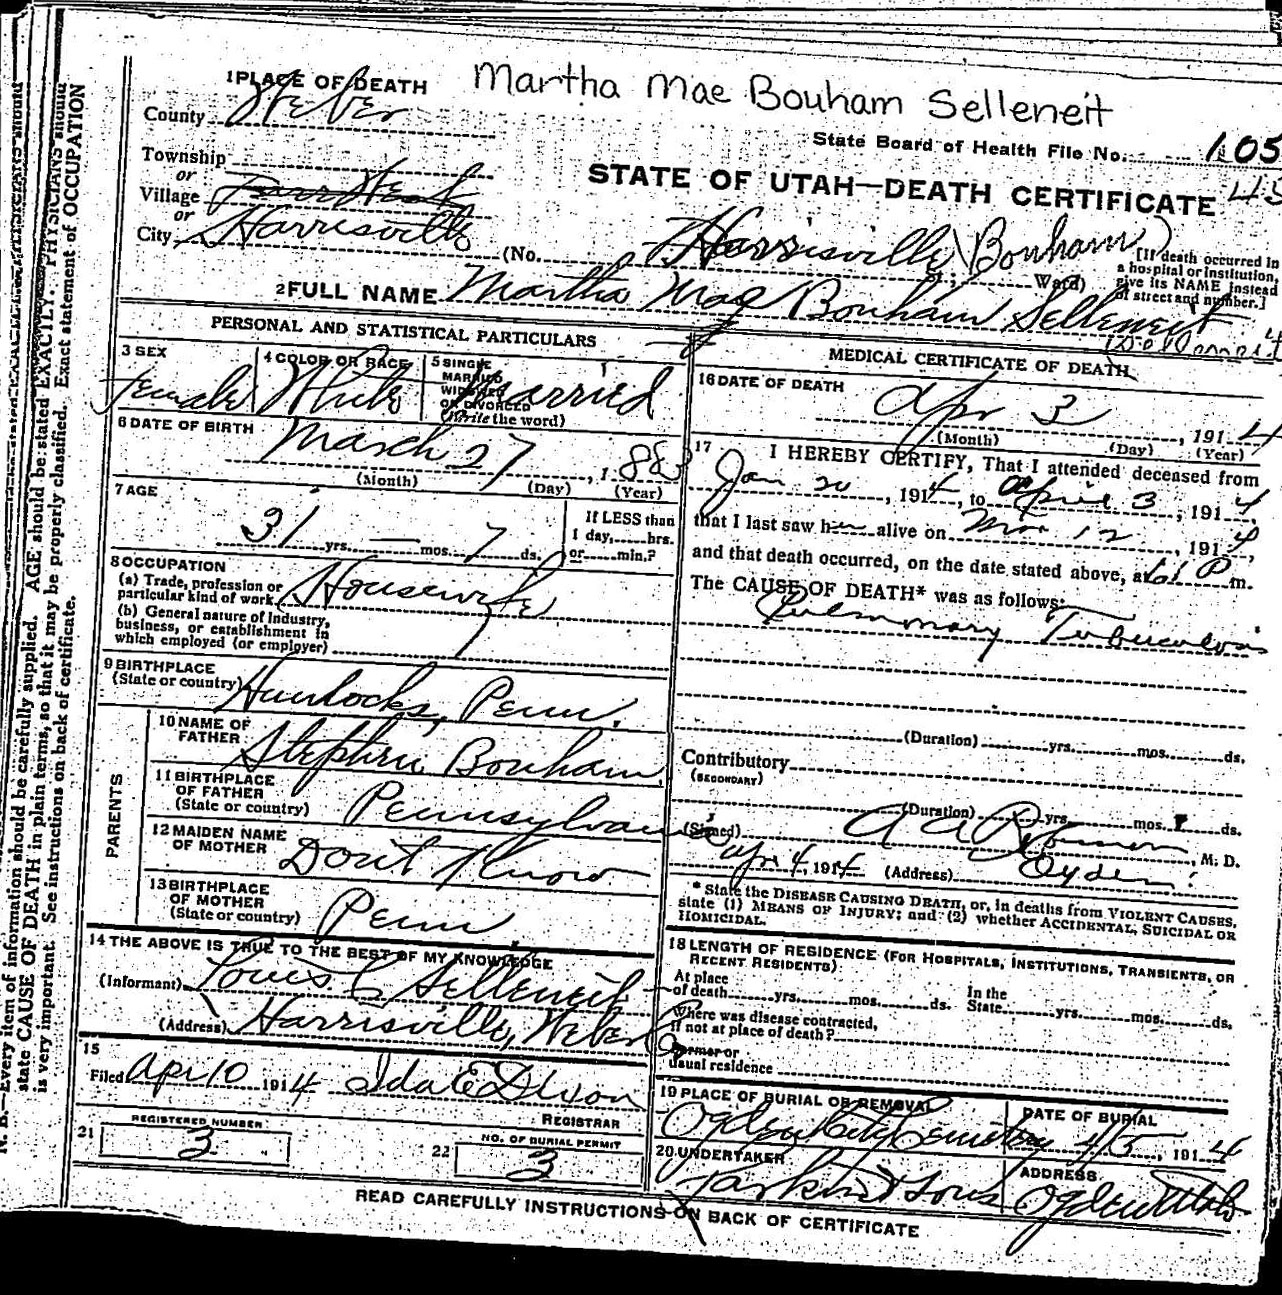 N. B.—Every item of information should be carefully supplied. AGE should be stated EXACTLY. PHYSICIANS should
state CAUSE OF DEATH in plain terms, so that it may be properly classified. Exact statement of OCCUPATION
is very important. See instructions on back of certificate.
Martha Mae Bouham Selleneit
1 PLACE OF DEATH
County Weber
State Board of Health File No. 105
Township
or
Village Farr West
or
City Harrisville
STATE OF UTAH—DEATH CERTIFICATE
(No. Harrisville St.; Ward) (Bonham)
[If death occurred in
a hospital or institution,
give its NAME instead
of street and number.]
2 FULL NAME Martha Mae Bonham Selleneit
PERSONAL AND STATISTICAL PARTICULARS
3 SEX Female
4 COLOR OR RACE White
5 SINGLE
MARRIED
WIDOWED
OR DIVORCED
(Write the word) Married
6 DATE OF BIRTH
March 27, 1883
(Month) (Day) (Year)
7 AGE
31 yrs. — mos. 7 ds.
If LESS than
1 day,......hrs.
or......min.?
8 OCCUPATION
(a) Trade, profession or
particular kind of work Housewife
(b) General nature of industry,
business, or establishment in
which employed (or employer)
9 BIRTHPLACE
(State or country) Hunlocks, Penn.
PARENTS
10 NAME OF
FATHER Stephen Bonham
11 BIRTHPLACE
OF FATHER
(State or country) Pennsylvania
12 MAIDEN NAME
OF MOTHER Don't Know
13 BIRTHPLACE
OF MOTHER
(State or country) Penn
14 THE ABOVE IS TRUE TO THE BEST OF MY KNOWLEDGE
(Informant) Louis C Selleneit
(Address) Harrisville, Weber Co
15
Filed Apr 10 1914 Ida E Dixon
REGISTRAR
21 REGISTERED NUMBER
3
22 NO. OF BURIAL PERMIT
3
MEDICAL CERTIFICATE OF DEATH
16 DATE OF DEATH
Apr 3, 1914
(Month) (Day) (Year)
17 I HEREBY CERTIFY, That I attended deceased from
Jan 20, 1914, to April 3, 1914,
that I last saw her alive on Mar 12, 1914,
and that death occurred, on the date stated above, at P m.
The CAUSE OF DEATH* was as follows:
Pulmonary Tuberculosis
(Duration) yrs. mos. ds.
Contributory
(SECONDARY)
(Duration) yrs. mos. ds.
(Signed) A A Robinson, M. D.
Apr 4, 1914 (Address) Ogden
* State the DISEASE CAUSING DEATH, or, in deaths from VIOLENT CAUSES,
state (1) MEANS OF INJURY; and (2) whether ACCIDENTAL, SUICIDAL OR
HOMICIDAL.
18 LENGTH OF RESIDENCE (FOR HOSPITALS, INSTITUTIONS, TRANSIENTS, OR
RECENT RESIDENTS)
At place
of death yrs. mos. ds. In the
State yrs. mos. ds.
Where was disease contracted,
if not at place of death?
Former or
usual residence
19 PLACE OF BURIAL OR REMOVAL
Ogden City Cemetery
DATE OF BURIAL
4/5, 1914
20 UNDERTAKER
Larkin & Sons
ADDRESS
Ogden Utah
READ CAREFULLY INSTRUCTIONS ON BACK OF CERTIFICATE